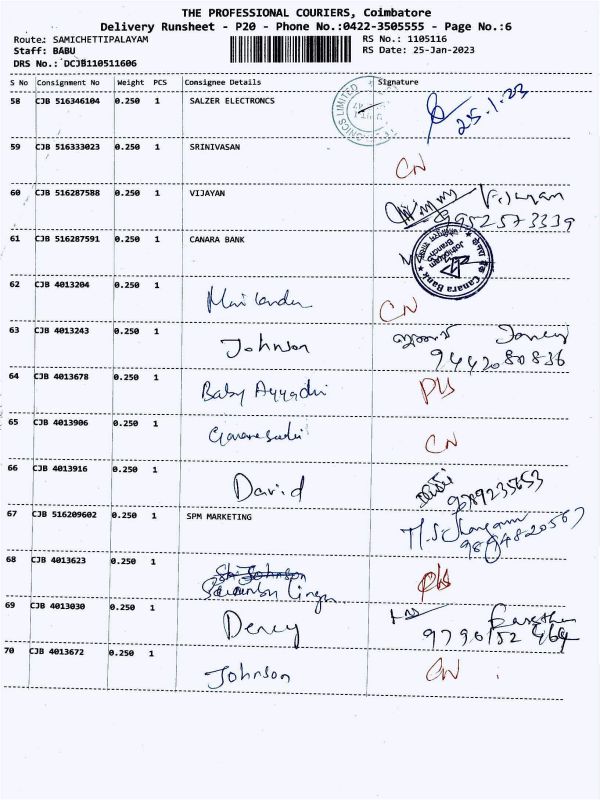 THE PROFESSIONAL COURIERS, Coimbatore
Delivery Runsheet - P20 - Phone No.:0422-3505555 - Page No.:6
Route: SAMICHETTIPALAYAM
RS No.: 1105116
Staff: BABU
RS Date: 25-Jan-2023
DRS No.: DCJB110511606
S No Consignment No Weight PCS Consignee Details Signature
58 CJB 516346104 0.250 1 SALZER ELECTRONICS 25.1.23
59 CJB 516333023 0.250 1 SRINIVASAN CN
60 CJB 516287588 0.250 1 VIJAYAN Vijayan
9952573339
61 CJB 516287591 0.250 1 CANARA BANK Canara Bank
62 CJB 4013204 0.250 1 CN
63 CJB 4013243 0.250 1 Johnson
9442080836
64 CJB 4013678 0.250 1 Baby
65 CJB 4013906 0.250 1 CN
66 CJB 4013916 0.250 1 David
9789235653
67 CJB 516209602 0.250 1 SPM MARKETING
68 CJB 4013623 0.250 1
69 CJB 4013030 0.250 1 Dency
70 CJB 4013672 0.250 1 Johnson CN